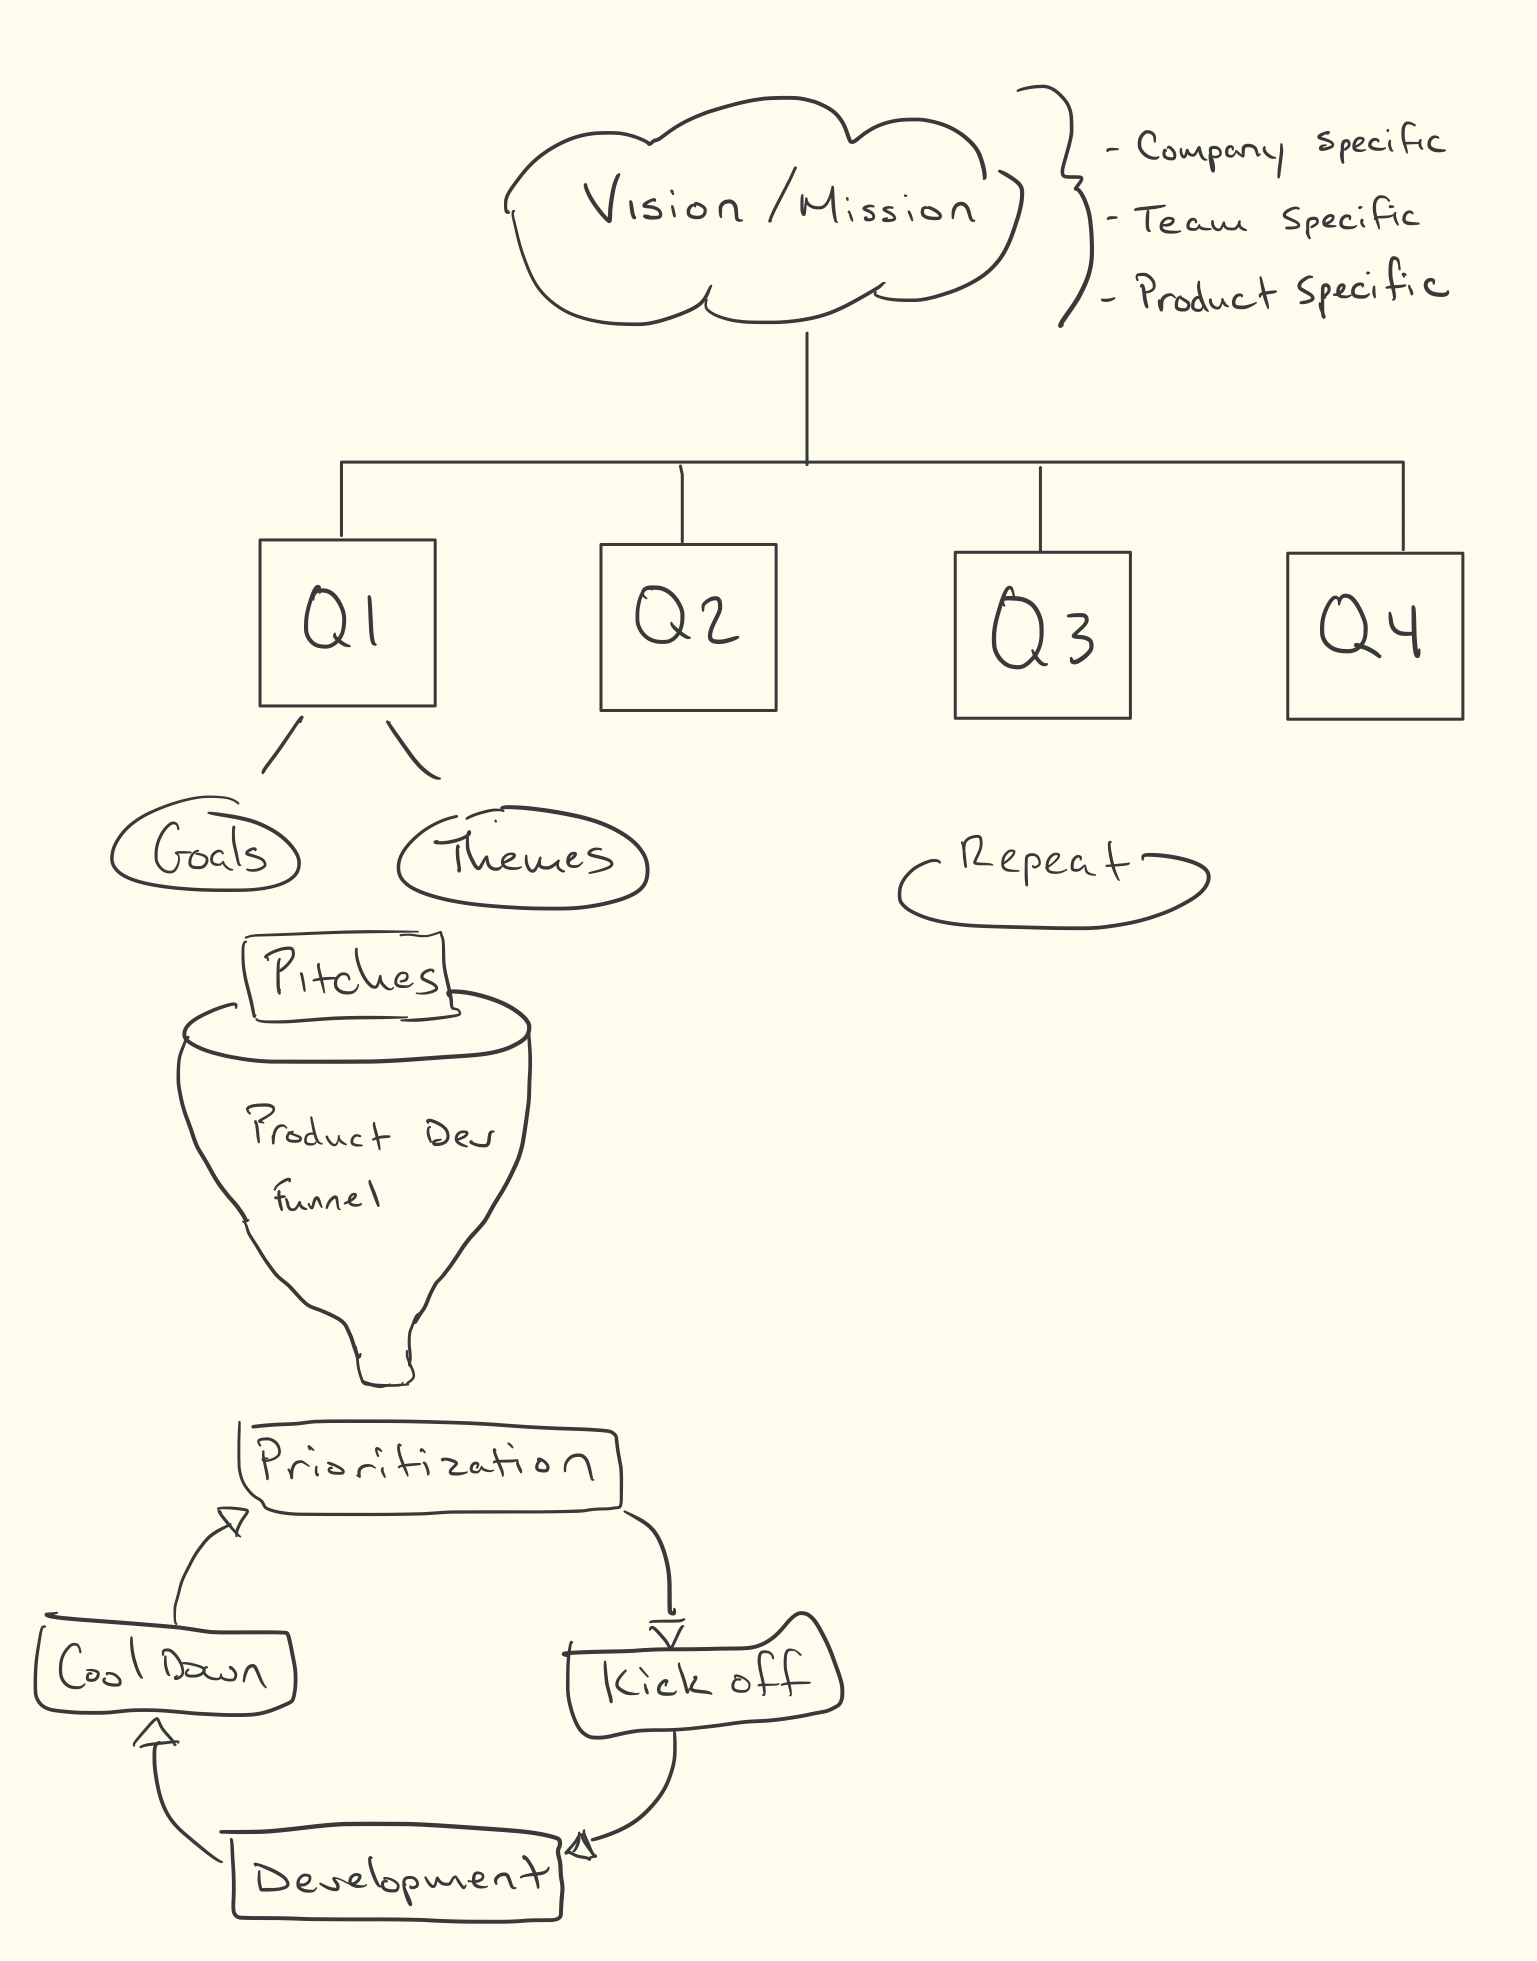 Vision/Mission
- Company specific
- Team specific
- Product specific
Q1
Q2
Q3
Q4
Goals
Themes
Repeat
Pitches
Product Dev
funnel
Prioritization
Cool Down
Kick off
Development